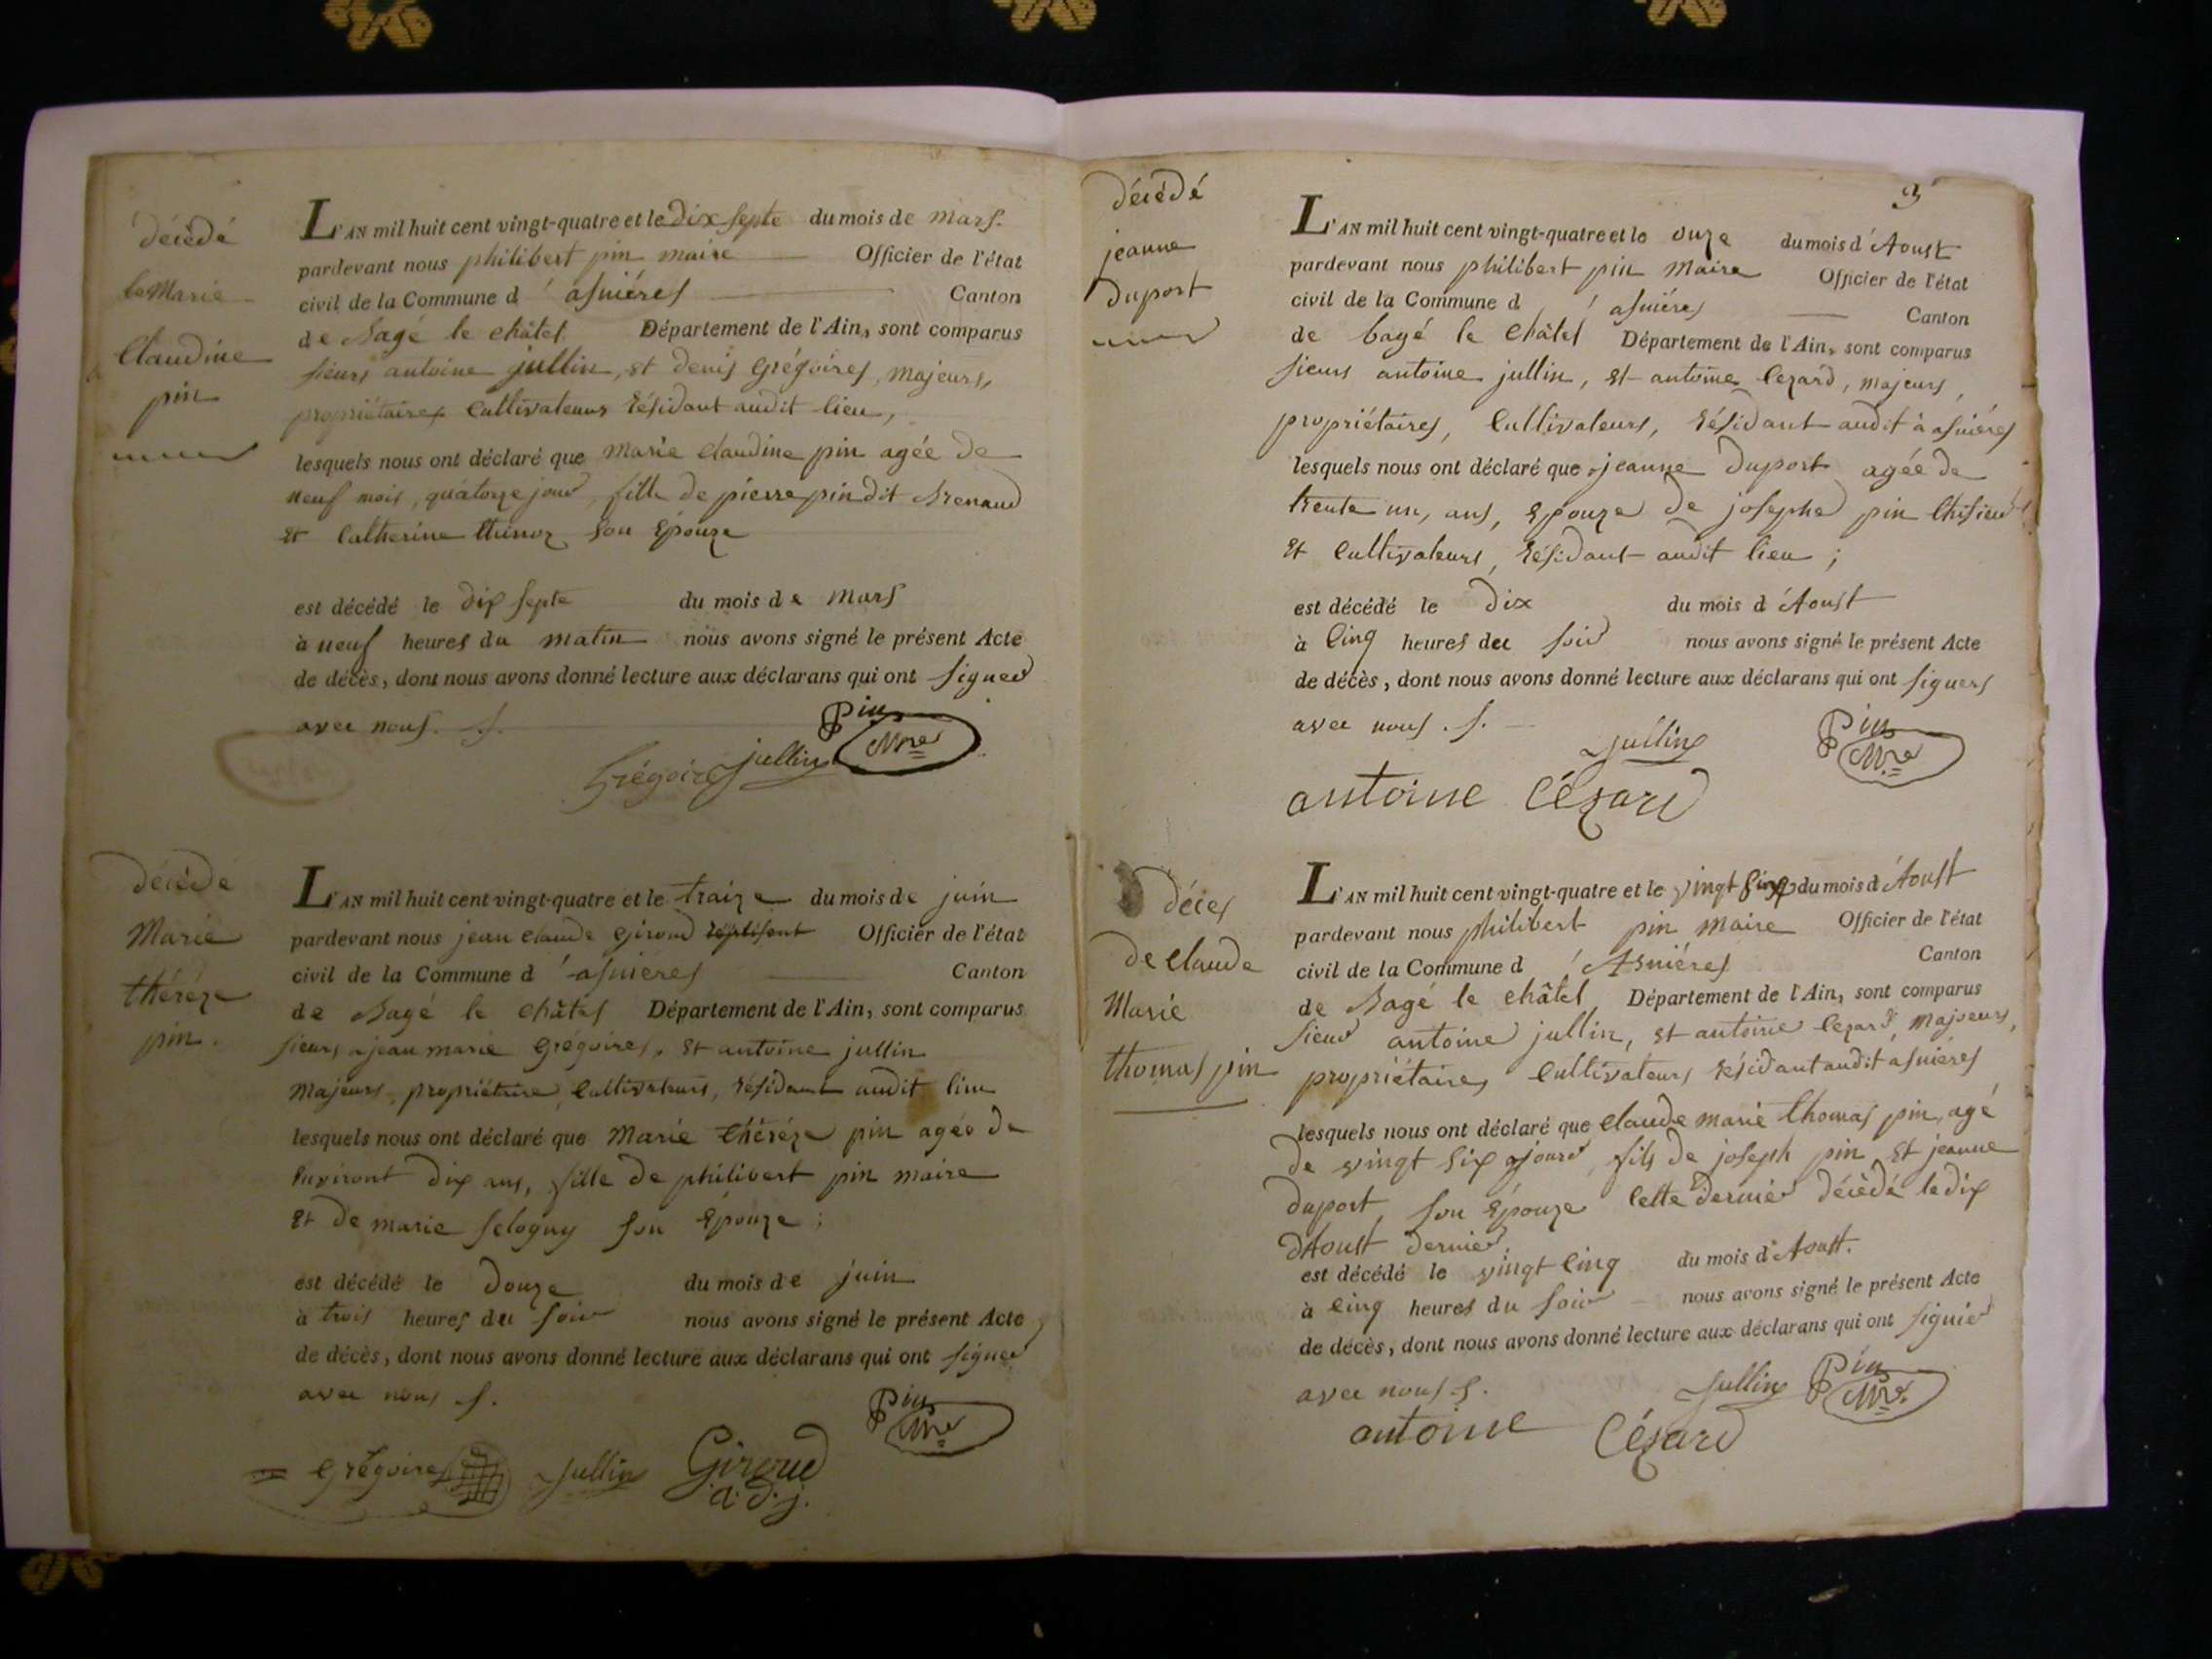 décédé
Marie
Claudine
pin
L'AN mil huit cent vingt-quatre et le dix septe du mois de mars.
pardevant nous philibert pin maire Officier de l'état
civil de la Commune d'asniéres Canton
de Bagé le châtel Département de l'Ain, sont comparus
sieurs antoine jullin, et denis Grégoires, majeurs,
propriétaires Cultivateurs résidant audit lieu,
lesquels nous ont déclaré que marie claudine pin agée de
neuf mois, quatorze jour, fille de pierre pin dit Brenaud
et Catherine son épouze
est décédé le dix septe du mois de mars
à neuf heures du matin nous avons signé le présent Acte
de décès, dont nous avons donné lecture aux déclarans qui ont signer
avec nous. S.
Pin
Mre
Grégoire jullin
décédé
Marie
thérèze
pin.
L'AN mil huit cent vingt-quatre et le traize du mois de juin
pardevant nous jean claude giroud Officier de l'état
civil de la Commune d'asniéres Canton
de Bagé le châtel Département de l'Ain, sont comparus
sieurs jean marie Grégoires, et antoine jullin
Majeurs, propriétaire, Cultivateurs, résidant audit lieu
lesquels nous ont déclaré que Marie thérèze pin agée de
environt dix ans, fille de philibert pin maire
et de marie sologny son épouze ;
est décédé le douze du mois de juin
à trois heures du soir nous avons signé le présent Acte
de décès, dont nous avons donné lecture aux déclarans qui ont signer
avec nous S.
Pin
Mre
Grégoires Jullin Giroud
a.d.j.
3
décédé
jeanne
duport
L'AN mil huit cent vingt-quatre et le onze du mois d'Aoust
pardevant nous philibert pin Maire Officier de l'état
civil de la Commune d'asniéres Canton
de bagé le Châtel Département de l'Ain, sont comparus
sieurs antoine jullin, et antoine Cezard, majeurs,
propriétaires, Cultivateurs, résidant audit à asniéres
lesquels nous ont déclaré que jeanne duport agée de
trente un, ans, épouze de josephe pin
et Cultivateurs, résidant audit lieu ;
est décédé le dix du mois d'Aoust
à Cinq heures du soir nous avons signé le présent Acte
de décès, dont nous avons donné lecture aux déclarans qui ont signers
avec nous. S.
Jullin
Pin
Mre
antoine Cézard
décés
de Claude
Marie
thomas pin
L'AN mil huit cent vingt-quatre et le vingt du mois d'Aoust
pardevant nous philibert pin maire Officier de l'état
civil de la Commune d'Asniéres Canton
de Bagé le châtel Département de l'Ain, sont comparus
sieur antoine jullin, et antoine Cezard, majeurs,
propriétaires Cultivateurs résidant audit asniéres
lesquels nous ont déclaré que Claude marie thomas pin, agé
de vingt six jours, fils de joseph pin et jeanne
duport son épouze Cette dernier décédé le dix
d'Aoust dernier
est décédé le vingt Cinq du mois d'Aoust.
à Cinq heures du soir nous avons signé le présent Acte
de décès, dont nous avons donné lecture aux déclarans qui ont signier
avec nous S.
Jullin
Pin
Mre
antoine Cézard